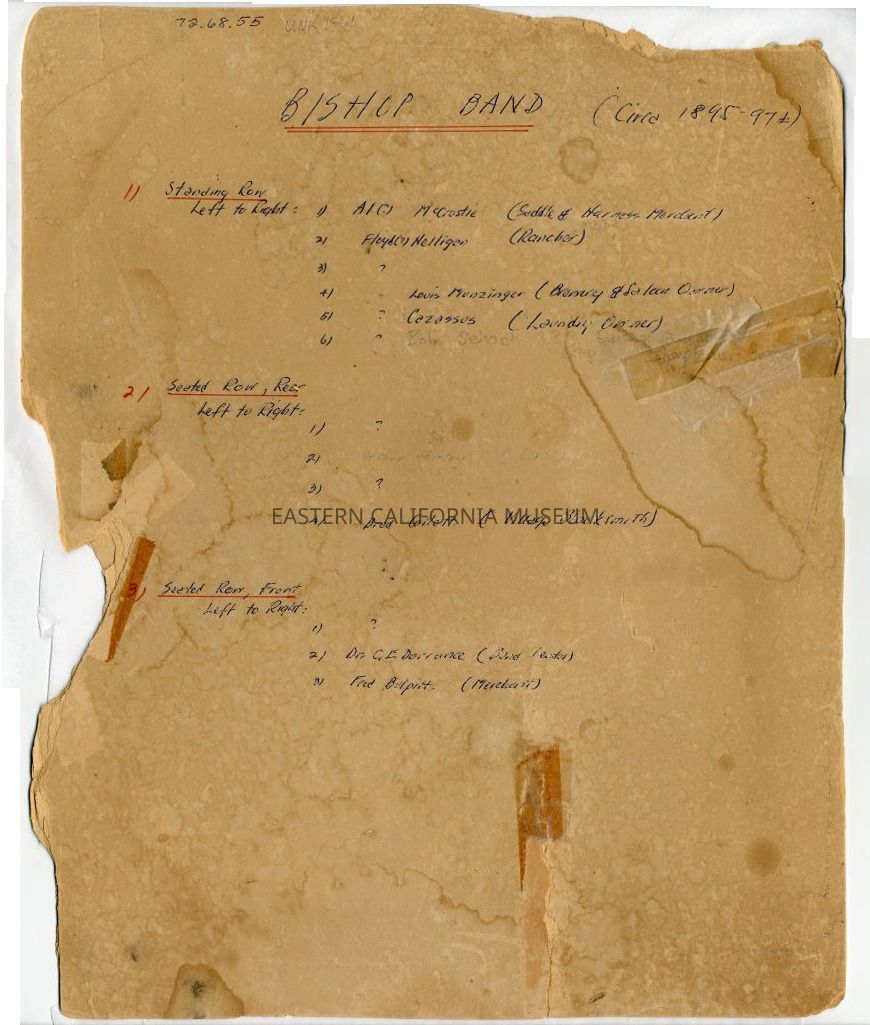 72.68.55 UNK
BISHOP BAND (Circa 1895-97±)
1) Standing Row
Left to Right: 1) Al(?) McCrostie (Saddle & Harness Merchant)
2) Floyd(?) Nelligan (Rancher)
3) ?
4) Louis Munzinger (Brewery & Saloon Owner)
5) ? Cazassus (Laundry Owner)
6) ? Bob School
2) Seated Row, Rear
Left to Right:
1) ?
2)
3) ?
EASTERN CALIFORNIA MUSEUM
4) (Village Blacksmith)
3) Seated Row, Front
Left to Right:
1) ?
2) Dr. G.E. Dorrance (Band Leader)
3) Fred Bulpitt. (Merchant)